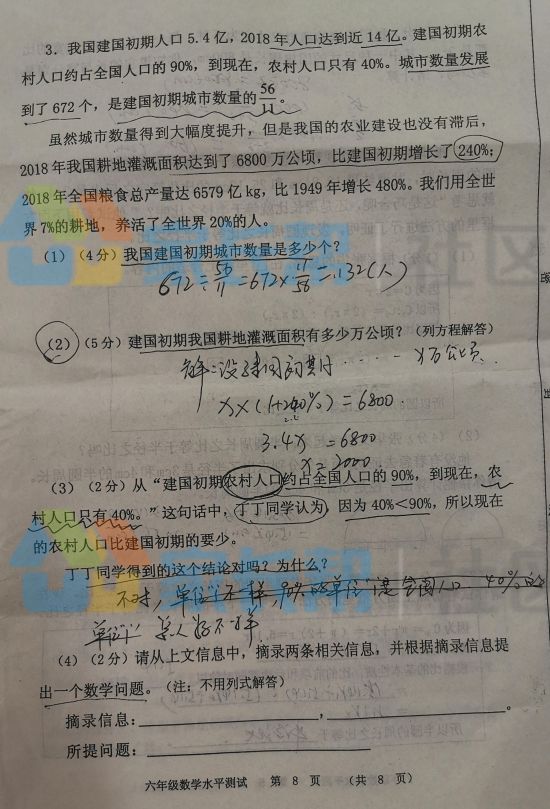 3．我国建国初期人口 5.4 亿，2018 年人口达到近 14 亿。建国初期农
村人口约占全国人口的 90%，到现在，农村人口只有 40%。城市数量发展
到了 672 个，是建国初期城市数量的56/11。
虽然城市数量得到大幅度提升，但是我国的农业建设也没有滞后，
2018 年我国耕地灌溉面积达到了 6800 万公顷，比建国初期增长了 240%；
2018 年全国粮食总产量达 6579 亿 kg，比 1949 年增长 480%。我们用全世
界 7%的耕地，养活了全世界 20%的人。
（1）（4 分）我国建国初期城市数量是多少个？
672÷56/11=672×11/56=132(人)
（2）（5 分）建国初期我国耕地灌溉面积有多少万公顷？（列方程解答）
解：设建国初期······x万公顷
x×(1+240%)=6800
3.4x=6800
x=2000
（3）（2 分）从“建国初期农村人口约占全国人口的 90%，到现在，农
村人口只有 40%。”这句话中，丁丁同学认为，因为 40%＜90%，所以现在
的农村人口比建国初期的要少。
丁丁同学得到的这个结论对吗？为什么？
不对，单位“1”不一样，单位“1”是全国人口 40%的
单位“1” 不一样
（4）（2 分）请从上文信息中，摘录两条相关信息，并根据摘录信息提
出一个数学问题。（注：不用列式解答）
摘录信息：，。
所提问题：
六年级数学水平测试 第 8 页 （共 8 页）